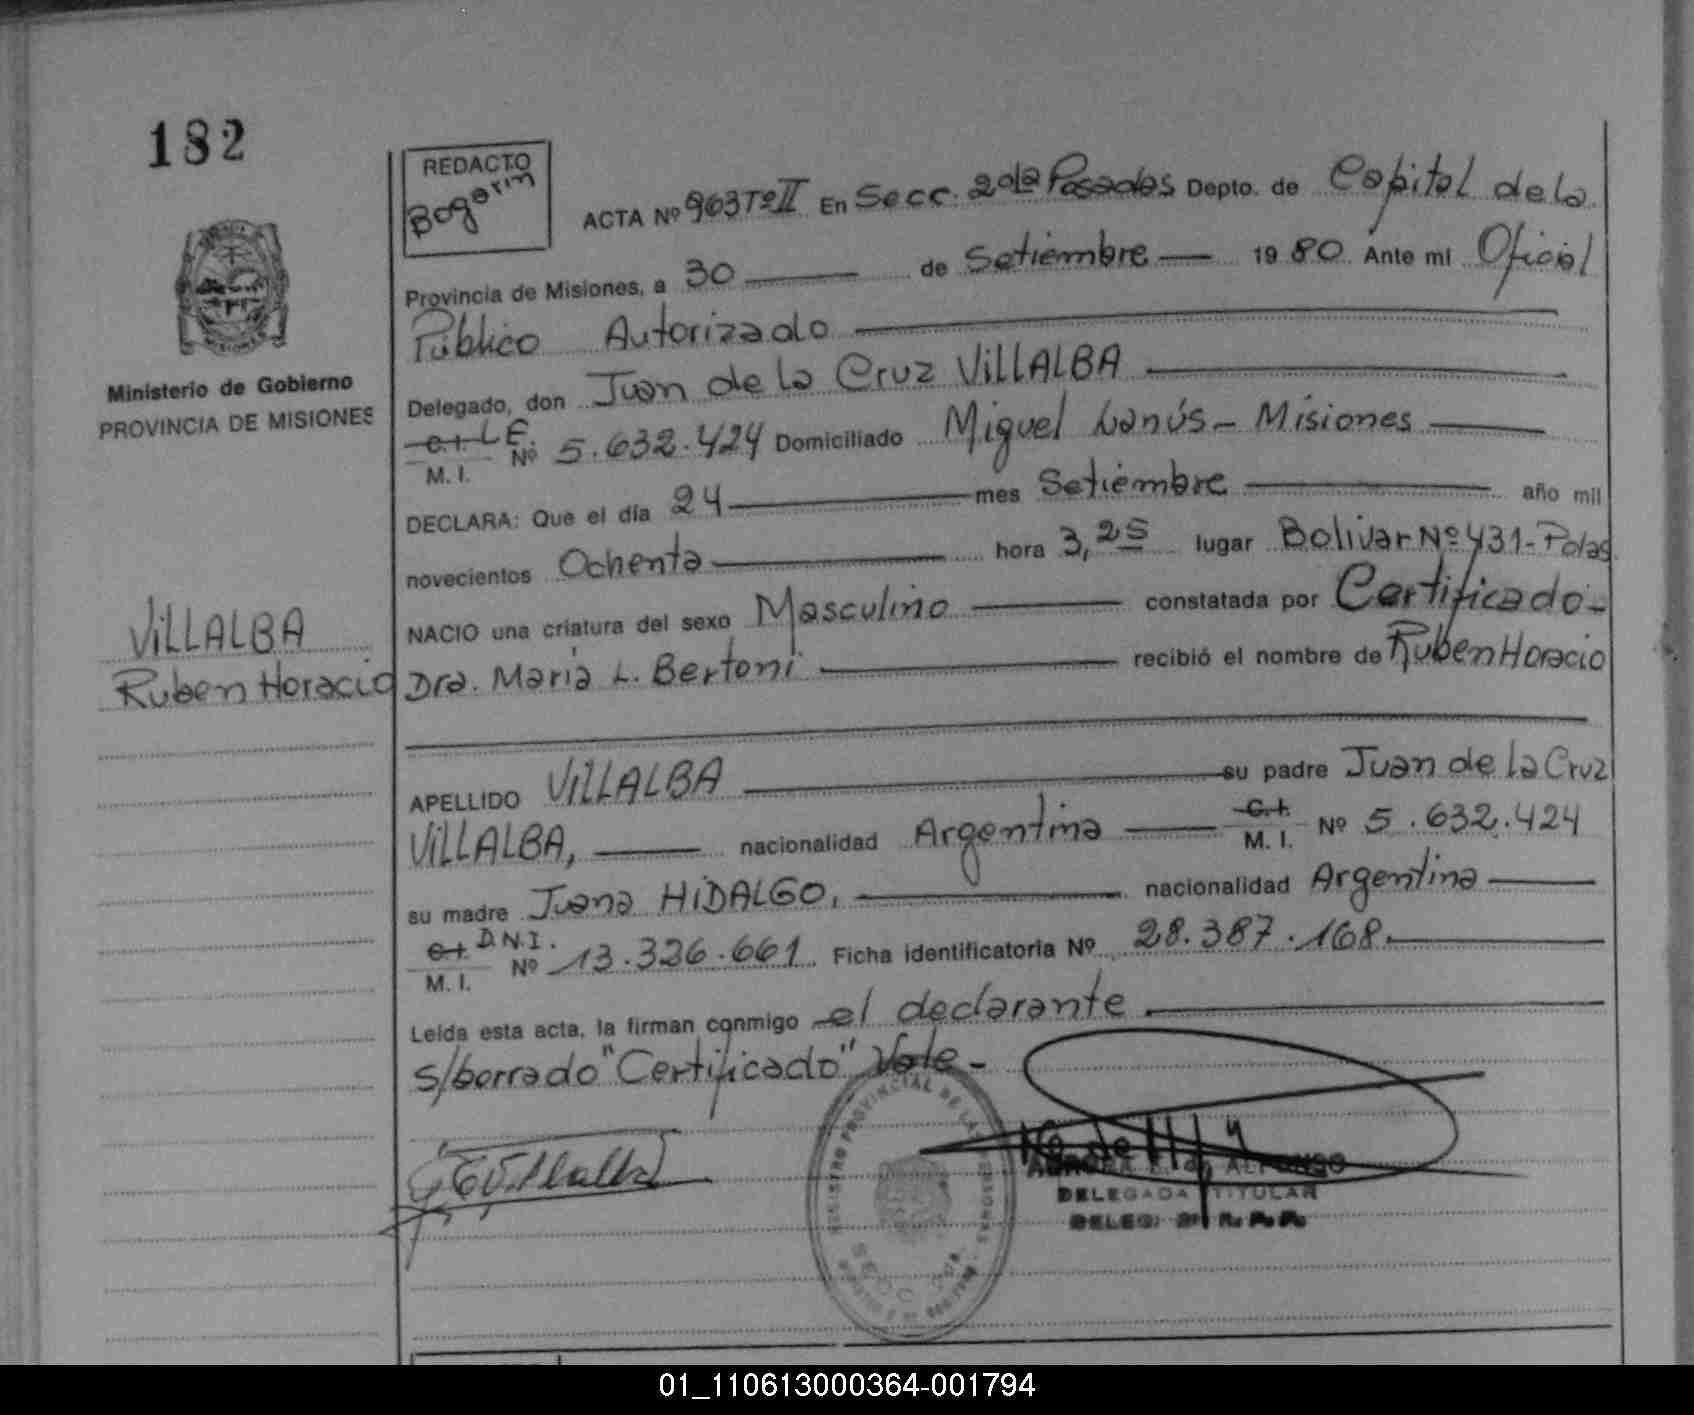 182
REDACTO
Bogarin
ACTA Nº 963 Tº II En Secc. 2da Posadas Depto. de Capital de la
Provincia de Misiones, a 30 de Setiembre 1980. Ante mi Oficial
Público Autorizado
Ministerio de Gobierno
PROVINCIA DE MISIONES
Delegado, don Juan de la Cruz VILLALBA
C.I. L.E.
M. I. Nº 5.632.424 Domiciliado Miguel Lanús - Misiones
DECLARA: Que el día 24 mes Setiembre año mil
novecientos Ochenta hora 3,25 lugar Bolivar Nº 431-Pdas
NACIO una criatura del sexo Masculino constatada por Certificado-
VILLALBA
Ruben Horacio
Dra. Maria L. Bertoni recibió el nombre de Ruben Horacio
APELLIDO VILLALBA su padre Juan de la Cruz
VILLALBA, nacionalidad Argentina C.I. M. I. Nº 5.632.424
su madre Juana HIDALGO, nacionalidad Argentina
C.I. D.N.I.
M. I. Nº 13.326.661 Ficha identificatoria Nº 28.387.168.
Leída esta acta, la firman conmigo el declarante
s/borrado "Certificado" Vale-
REGISTRO PROVINCIAL DE LAS PERSONAS
Villalba
ALFONSO
DELEGADA TITULAR
DELEG. R. P. P.
01_110613000364-001794